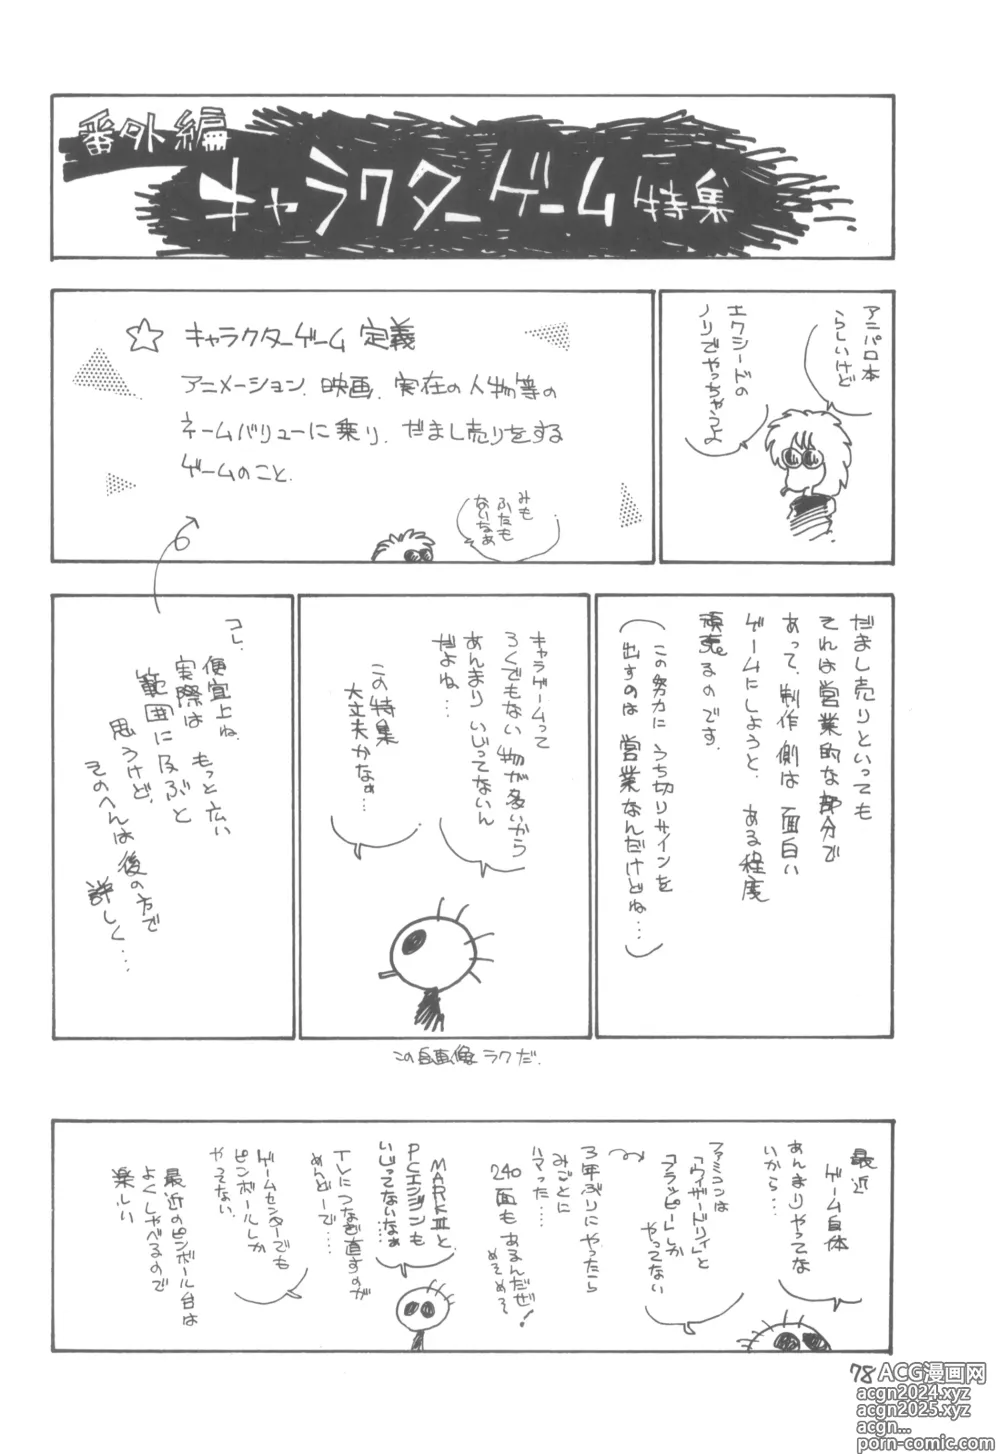 番外編
キャラクターゲーム特集
アニパロ本
らしいけど
エクシードの
ノリでやっちゃうよ
☆ キャラクターゲーム 定義
アニメーション、映画、実在の人物等の
ネームバリューに乗り、だまし売りをする
ゲームのこと。
みも
ふたも
ないなぁ
だまし売りといっても
それは営業的な部分で
あって、制作側は面白い
ゲームにしようと、ある程度
頑張るのです。
(この努力にうち切りサインを
出すのは営業なんだけどね…)
キャラゲームって
ろくでもない物が多いから
あんまりいじってないん
だよね…
この特集
大丈夫かなぁ…
コレ、
便宜上ね、
実際は もっと広い
範囲に及ぶと
思うけど、
そのへんは後の方で
詳しく…
この自画像ラクだ。
最近
ゲーム自体
あんまりやってな
いから…
ファミコンは
「ウィザードリィ」と
「フラッピー」しか
やってない
3年ぶりにやったら
みごとに
ハマった…
240
面もあるんだぜ!
めそめそ
MARKⅢと
PCエンジンも
いじってないなぁ…
TVにつなぎ直すのが
めんどーで…
ゲームセンターでも
ピンボールしか
やってない
最近のピンボール台は
よくしゃべるので
楽しい
78
ACG漫画网
acgn2024.xyz
acgn2025.xyz
acgn...
porn-comic.com